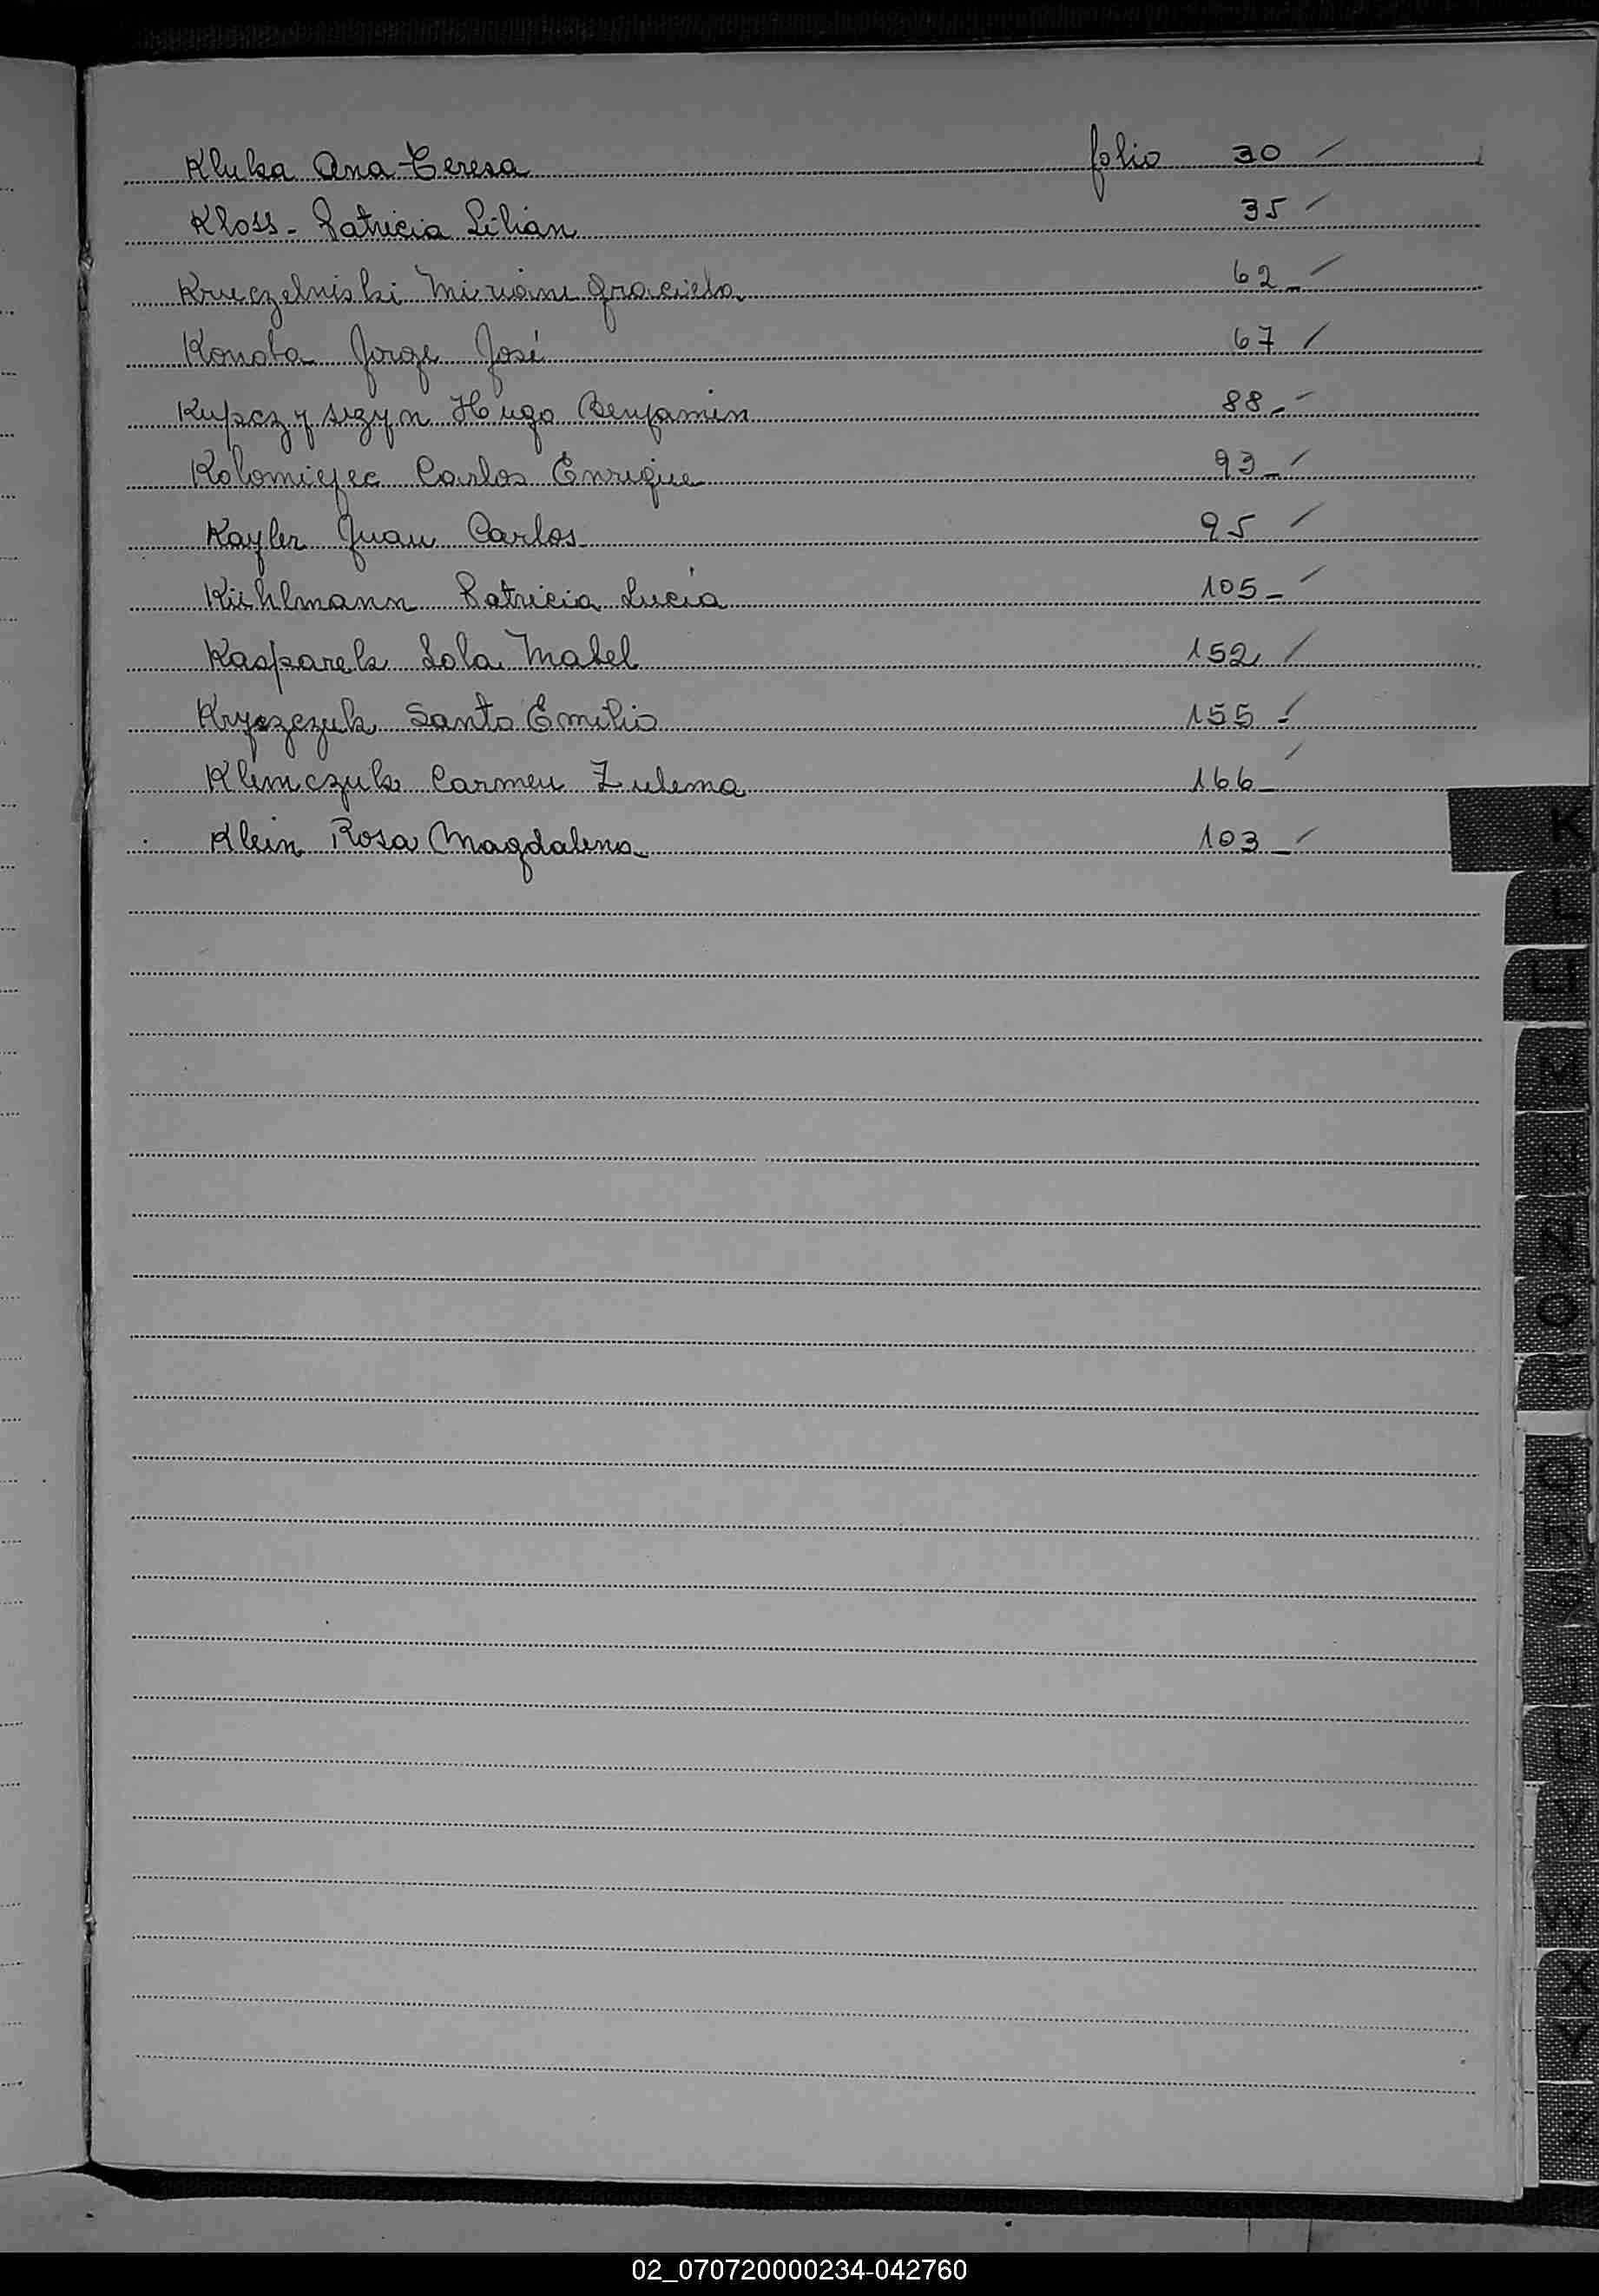 Kluka Ana Teresa folio 30
Kloss - Patricia Lilian 35
Kruczelniski Miriam Graciela 62
Konoba Jorge José 67
Kupczyszyn Hugo Benjamin 88
Kolomiejec Carlos Enrique 93
Kayler Juan Carlos 95
Kühlmann Patricia Lucía 105
Kasparek Lola Mabel 152
Kryszczuk Santo Emilio 155
Klimczuk Carmen Zulema 166
Klein Rosa Magdalena 103
K
L
LL
M
N
Ñ
O
P
Q
R
S
T
U
V
W
X
Y
Z
02_070720000234-042760